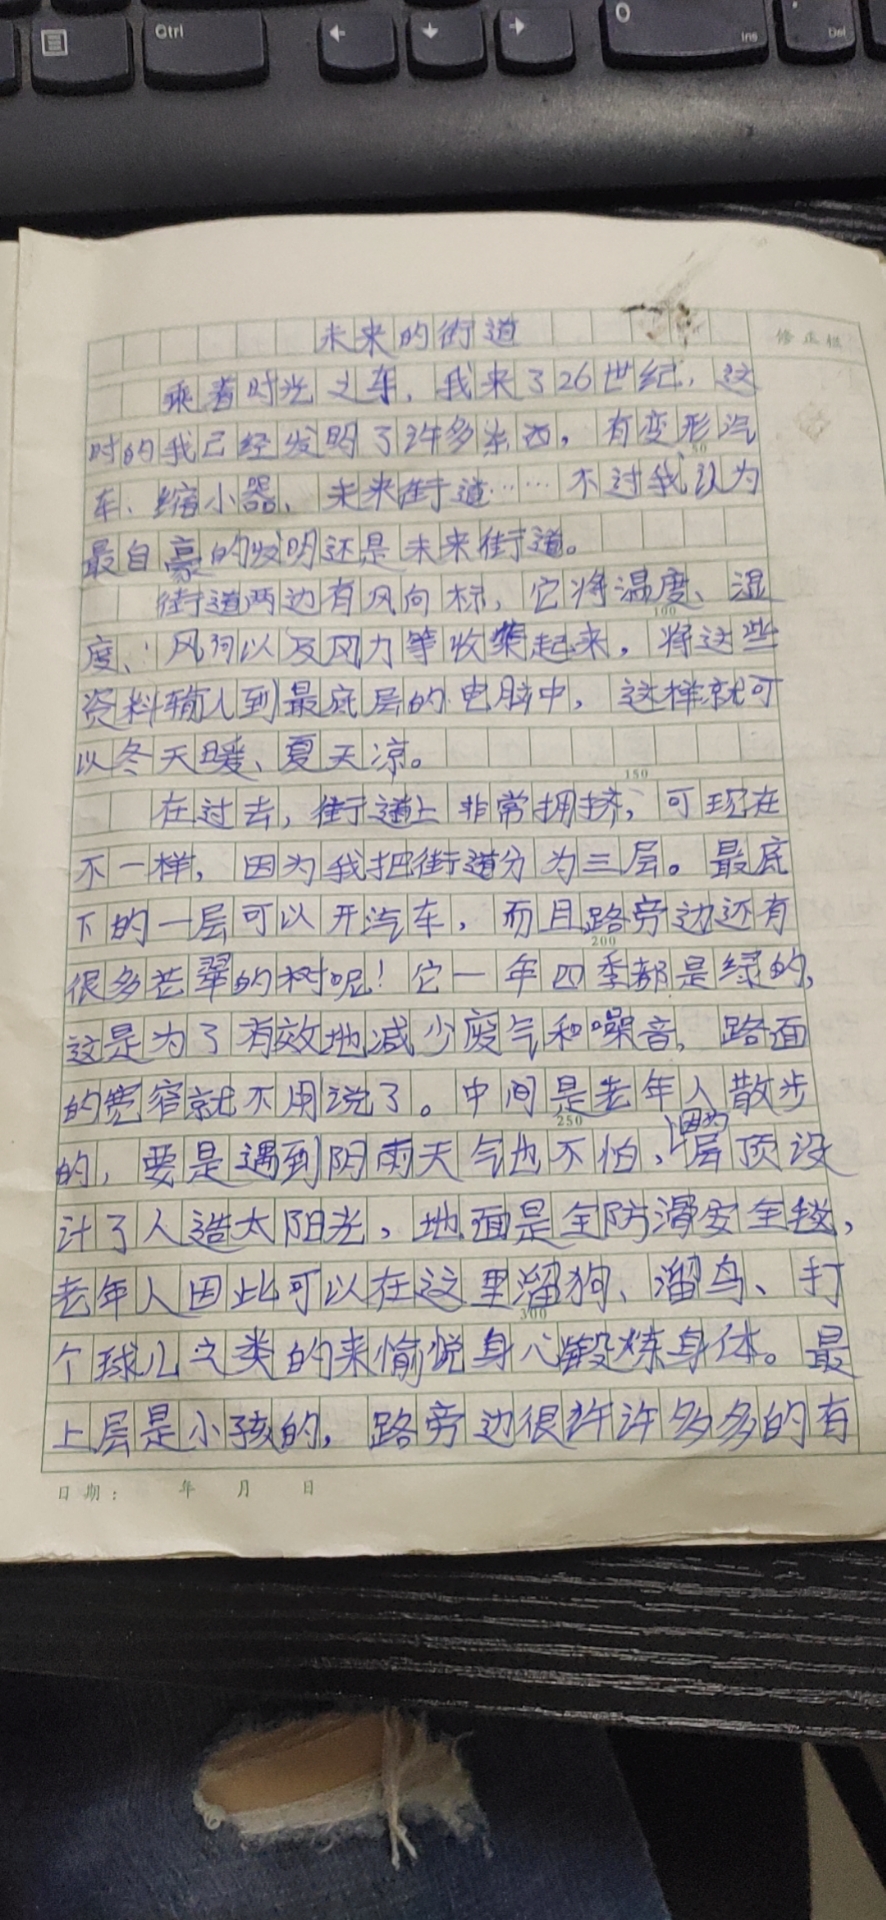 Ctrl
0
Ins
Del
未来的街道
修正栏
乘着时光之车，我来了26世纪，这
时的我已经发明了许多东西，有变形汽
50
车、缩小器、未来街道……不过我认为
最自豪的发明还是未来街道。
街道两边有风向标，它将温度、湿
100
度、风向以及风力等收集起来，将这些
资料输入到最底层的电脑中，这样就可
以冬天暖、夏天凉。
150
在过去，街道上非常拥挤，可现在
不一样，因为我把街道分为三层。最底
下的一层可以开汽车，而且路旁边还有
200
很多苍翠的树呢！它一年四季都是绿的，
这是为了有效地减少废气和噪音，路面
的宽窄就不用说了。中间是老年人散步
250
的，要是遇到阴雨天气也不怕，因为层顶设
计了人造太阳光，地面是全防滑安全毯，
老年人因此可以在这里溜狗、溜鸟、打
300
个球儿之类的来愉悦身心锻炼身体。最
上层是小孩的，路旁边很许许多多的有
日期： 年 月 日